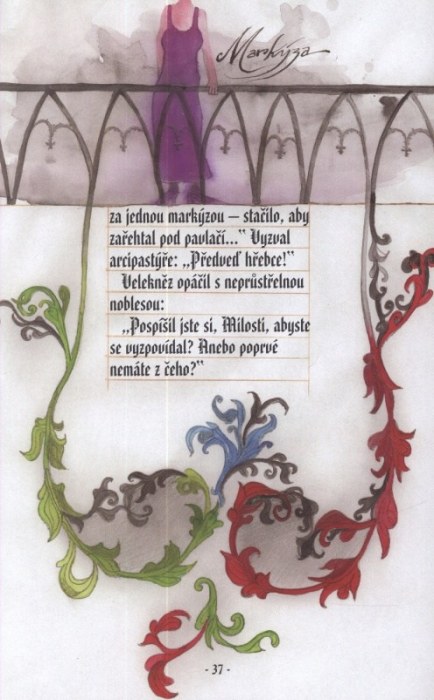 Markýza
za jednou markýzou — stačilo, aby
zařehtal pod pavlačí...“ Vyzval
arcipastýře: „Předveď hřebce!“
Velekněz opáčil s neprůstřelnou
noblesou:
„Pospíšil jste si, Milosti, abyste
se vyzpovídal? Anebo poprvé
nemáte z čeho?“
- 37 -